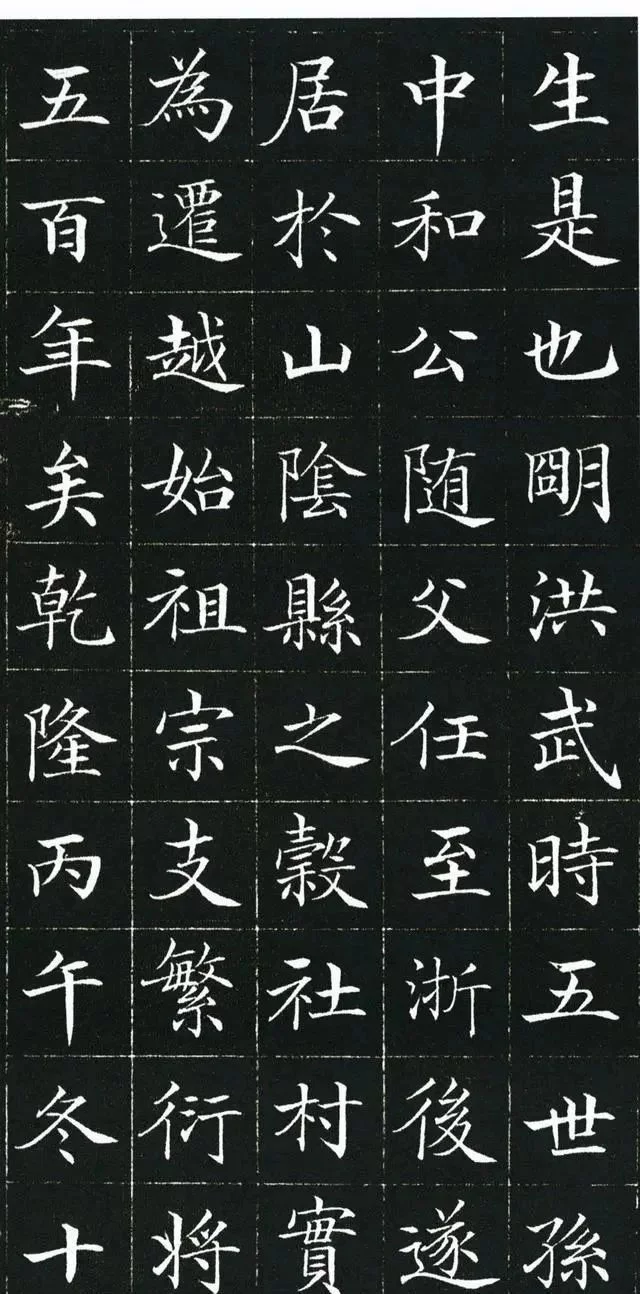 生是也朙洪武時五世孫
中和公随父任至浙後遂
居於山陰縣之穀社村實
為遷越始祖宗支繁衍將
五百年矣乾隆丙午冬十